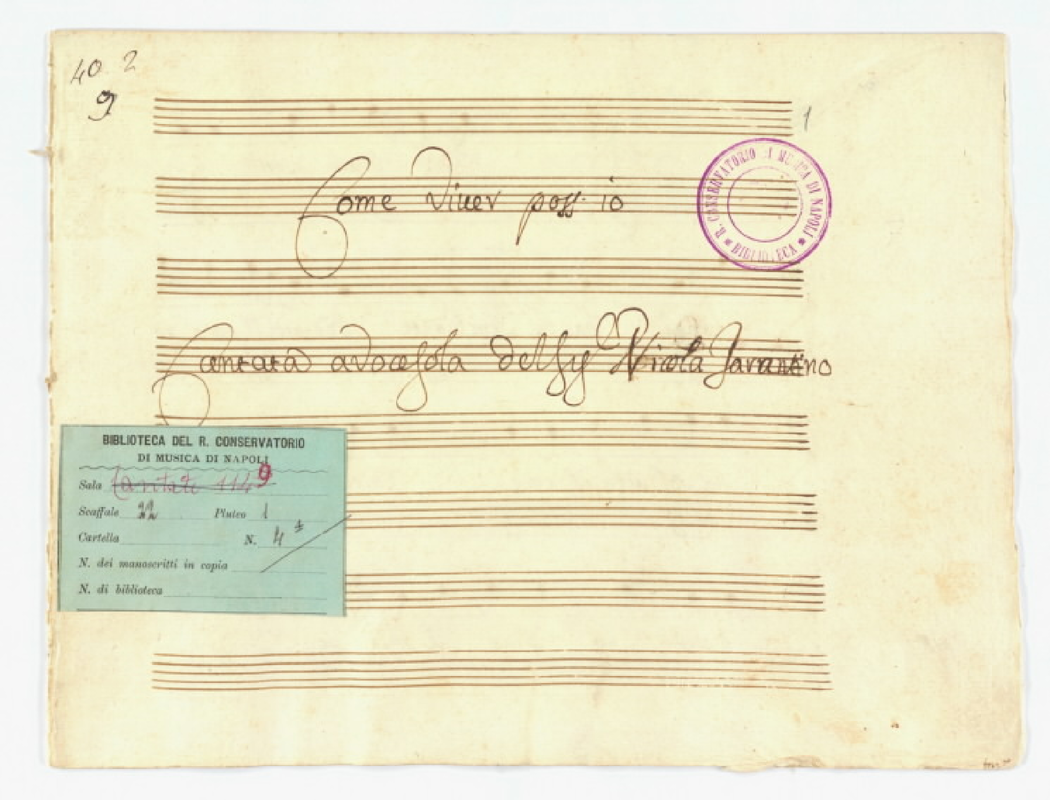 40 2
9
1
Come Viver poss. io
R. CONSERVATORIO DI MUSICA DI NAPOLI
* BIBLIOTECA *
Cantata a voce sola del Sig.r Nicola
BIBLIOTECA DEL R. CONSERVATORIO
DI MUSICA DI NAPOLI
Sala Cantate 1149
Scaffale 22 Pluteo 1
Cartella N. 4
N. dei manoscritti in copia
N. di biblioteca